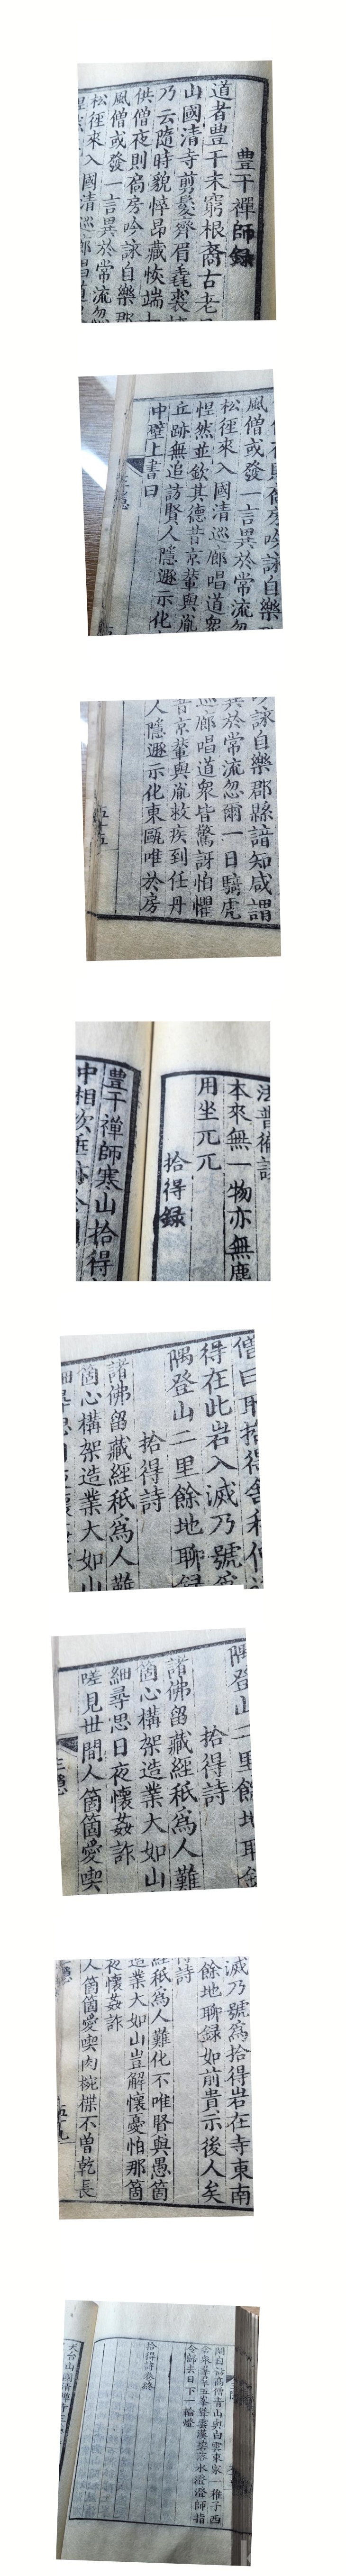 豊干禪師錄
道者豊干未窮根裔古老
山國清寺剪髮齊眉毳裘
乃云隨時貌悴昂藏恢端
供僧夜則扃房吟詠自樂郡
風僧或發一言異於常流忽
松徑來入國清巡廊唱道
風僧或發一言異於常流忽
松徑來入國清巡廊唱道衆
悝然並欽其德昔京輦與胤
丘跡無追訪賢人隱遯示化
中壁上書曰
三隱
吟詠自樂郡縣諳知咸謂
異於常流忽爾一日騎虎
巡廊唱道衆皆驚訝怕懼
昔京輦與胤救疾到任丹
人隱遯示化東甌唯於房
五十五
本來無一物亦無塵
用坐兀兀
拾得錄
豊干禪師寒山拾得
得在此岩入滅乃號
隅登山二里餘地聊錄
拾得詩
諸佛留藏經秖爲人難
箇心構架造業大如山
隅登山二里餘地聊
拾得詩
諸佛留藏經秖爲人難
箇心構架造業大如山
細尋思日夜懷姦詐
嗟見世間人箇箇愛喫
三隱
滅乃號爲拾得岩在寺東南
餘地聊錄如前貴示後人矣
詩
經秖爲人難化不唯賢與愚箇
造業大如山豈解懷憂怕那箇
夜懷姦詐
人箇箇愛喫肉椀楪不曾乾長
五十九
閑自訪高僧青山與白雲東家一稚子西
舍衆羣羣五峯聳雲漢碧落水澄澄師指
令歸去日下一輪燈
拾得詩卷終
天台山國清禪寺